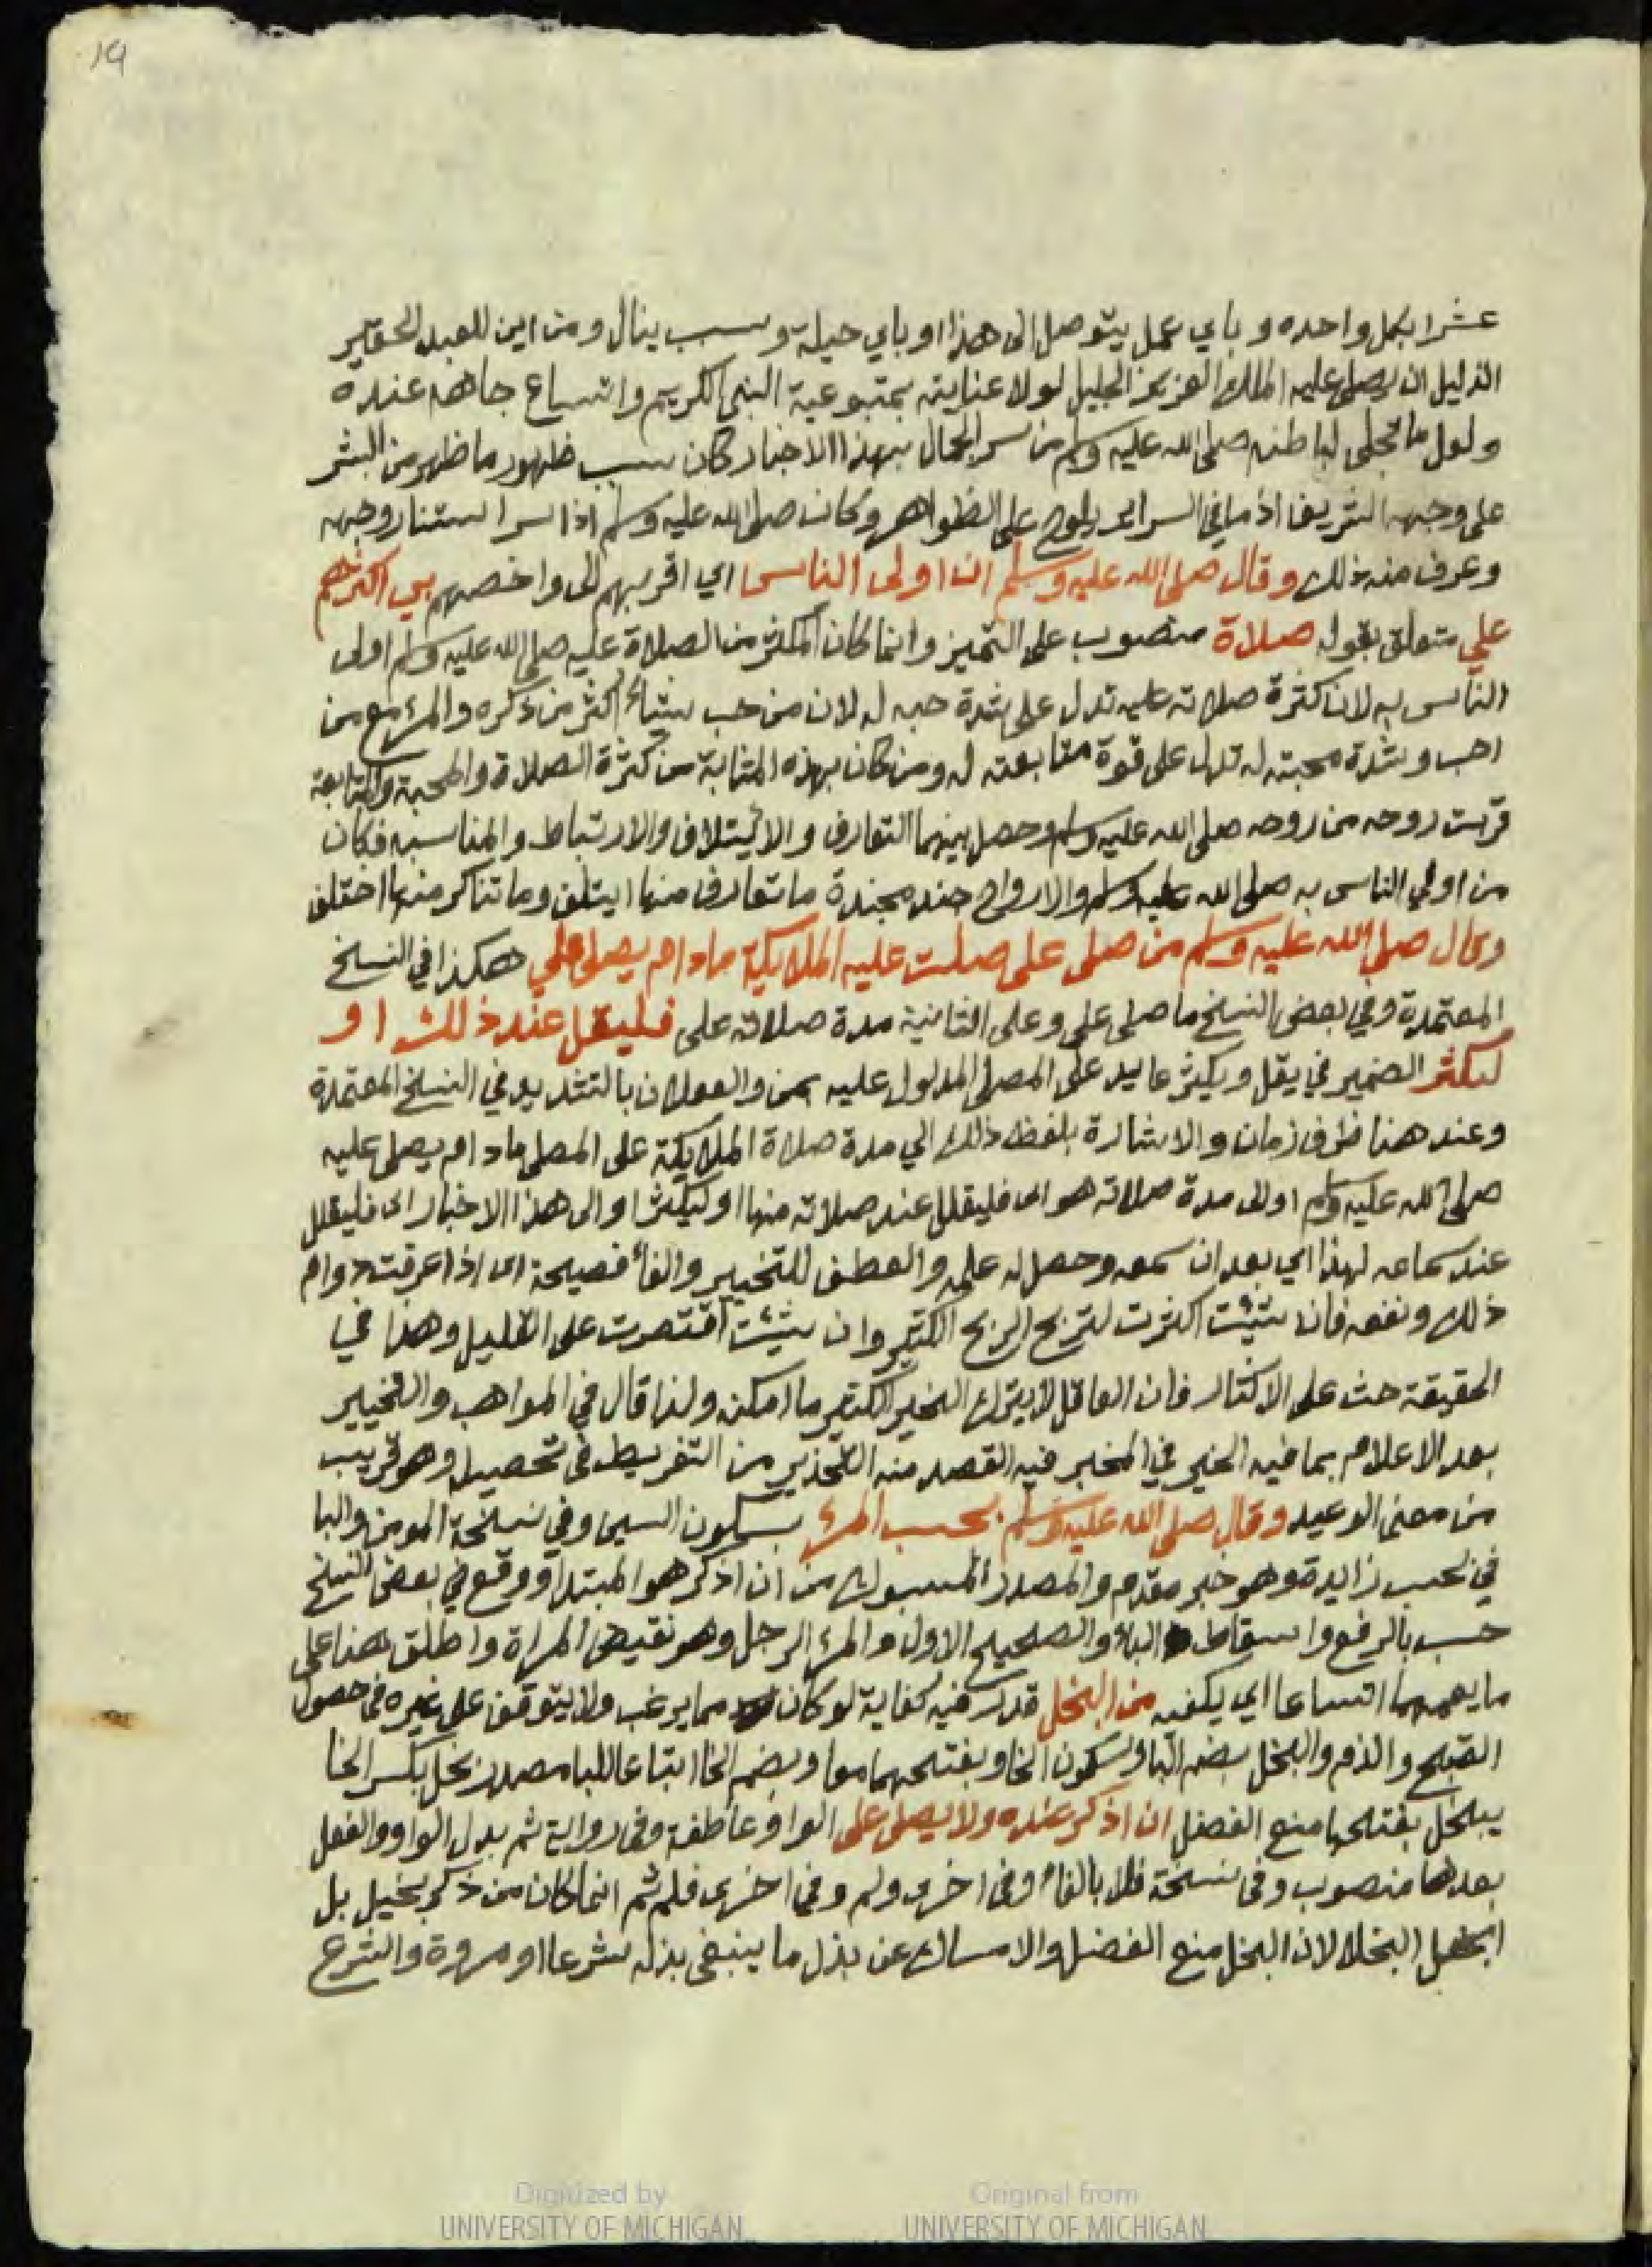 19
عشرا بكل واحده وباي عمل يتوصل الى هذا او باي حيلة وسبب ينال ومن اين للعبد الحقير
الذليل ان يصلي عليه الملك العزيز الجليل لولا عنايته بمتبوعية النبي الكريم واتساع جاهه عنده
ولعل ما تجلى لباطنه صلى الله عليه وسلم من سر الجمال بهذا الاخبار كان سبب ظهور ما ظهر من البشر
على وجهه الشريف اذ ما في السراير يلوح على الظواهر وكان صلى الله عليه وسلم اذا سر استنار وجهه
وعرف منه ذلك وقال صلى الله عليه وسلم ان اولى الناس اي اقربهم الى واخصهم بي اكثرهم
علي متعلق بقوله صلاة منصوب على التميز وانما كان المكثر من الصلاة عليه صلى الله عليه وسلم اولى
الناس به لان كثرة صلاته عليه تدل على شدة حبه له لان من حب شياء اكثر من ذكره والمرء مع من
احب وشدة محبته له تدل على قوة متابعته له ومن كان بهذه المثابة من كثرة الصلاة والمحبة والمتابعة
قربت روحه من روحه صلى الله عليه وسلم وحصل بينهما التعارف والائيتلاف والارتباط والمناسبه فكان
من اولي الناس به صلى الله عليه وسلم والارواح جند مجندة ما تعارف منها ايتلف وما تناكر منها اختلف
وقال صلى الله عليه وسلم من صلى على صلت عليه الملايكة مادام يصلي علي هكذا في النسخ
المعتمدة وفي بعض النسخ ما صلى علي وعلى الثانية مدة صلاته على فليقل عند ذلك او
ليكثر الضمير في يقل ويكثر عايد على المصلي المدلول عليه بمن والفعلان بالتشديد في النسخ المعتمدة
وعند هنا ظرف زمان والاشارة بلفظ ذلك الي مدة صلاة الملايكة على المصلي مادام يصلي عليه
صلى الله عليه وسلم اوالى مدة صلاته هو اى فليقلل عند صلاته منها او ليكثر او الى هذا الاخبار اى فليقلل
عند سماعه لهذا اي بعد ان سمعه وحصل له علمه والعطف للتخيير والفاء فصيحة اى اذا عرفت دوام
ذلك ونفعه فان شيئت اكثرت لتربح الربح الكثير وان شيئت اقتصرت على القليل وهذا في
الحقيقة حث على الاكثار فان العاقل لا يترك الخير الكثير ما امكنه ولذا قال في المواهب والتخيير
بعد الاعلام بما فيه الخير في المخبر فيه القصد منه التحذير من التفريط في تحصيله وهو قريب
من معنى الوعيد وقال صلى الله عليه وسلم بحسب المرء بسكون السين وفي نسخة المومن والبا
في بحسب زايدة وهو خبر مقدم والمصدر المسبوك من ان اذكر هو المبتدا ووقع في بعض النسخ
حسب بالرفع واسقاط الباء والصحيح الاول والمرء الرجل وهو نقيض المراة واطلق هنا على
ما يعمهما اتساعا اي يكفيه من البخل قدر فيه كفاية لو كان مما يرغب ولا يتوقف على غيره في حصول
القبح والذم والبخل بضم البا وسكون الخا وبفتحهما معا وبضم الخا اتباعا للبا مصدر بخل بكسر الخا
يبخل بفتحها منع الفضل ان اذكر عنده ولا يصلي على الواو عاطفة وفي رواية ثم بدل الواو والفعل
بعدها منصوب وفي نسخة فلا بالفاء وفي اخرى ولم وفي اخرى فلم ثم انما كان من ذكر بخيل بل
ابخل البخلا لان البخل منع الفضل والامساك عن بذل ما ينبغي بذله شرعا او مروة والشرع
Digitized by
UNIVERSITY OF MICHIGAN
Original from
UNIVERSITY OF MICHIGAN